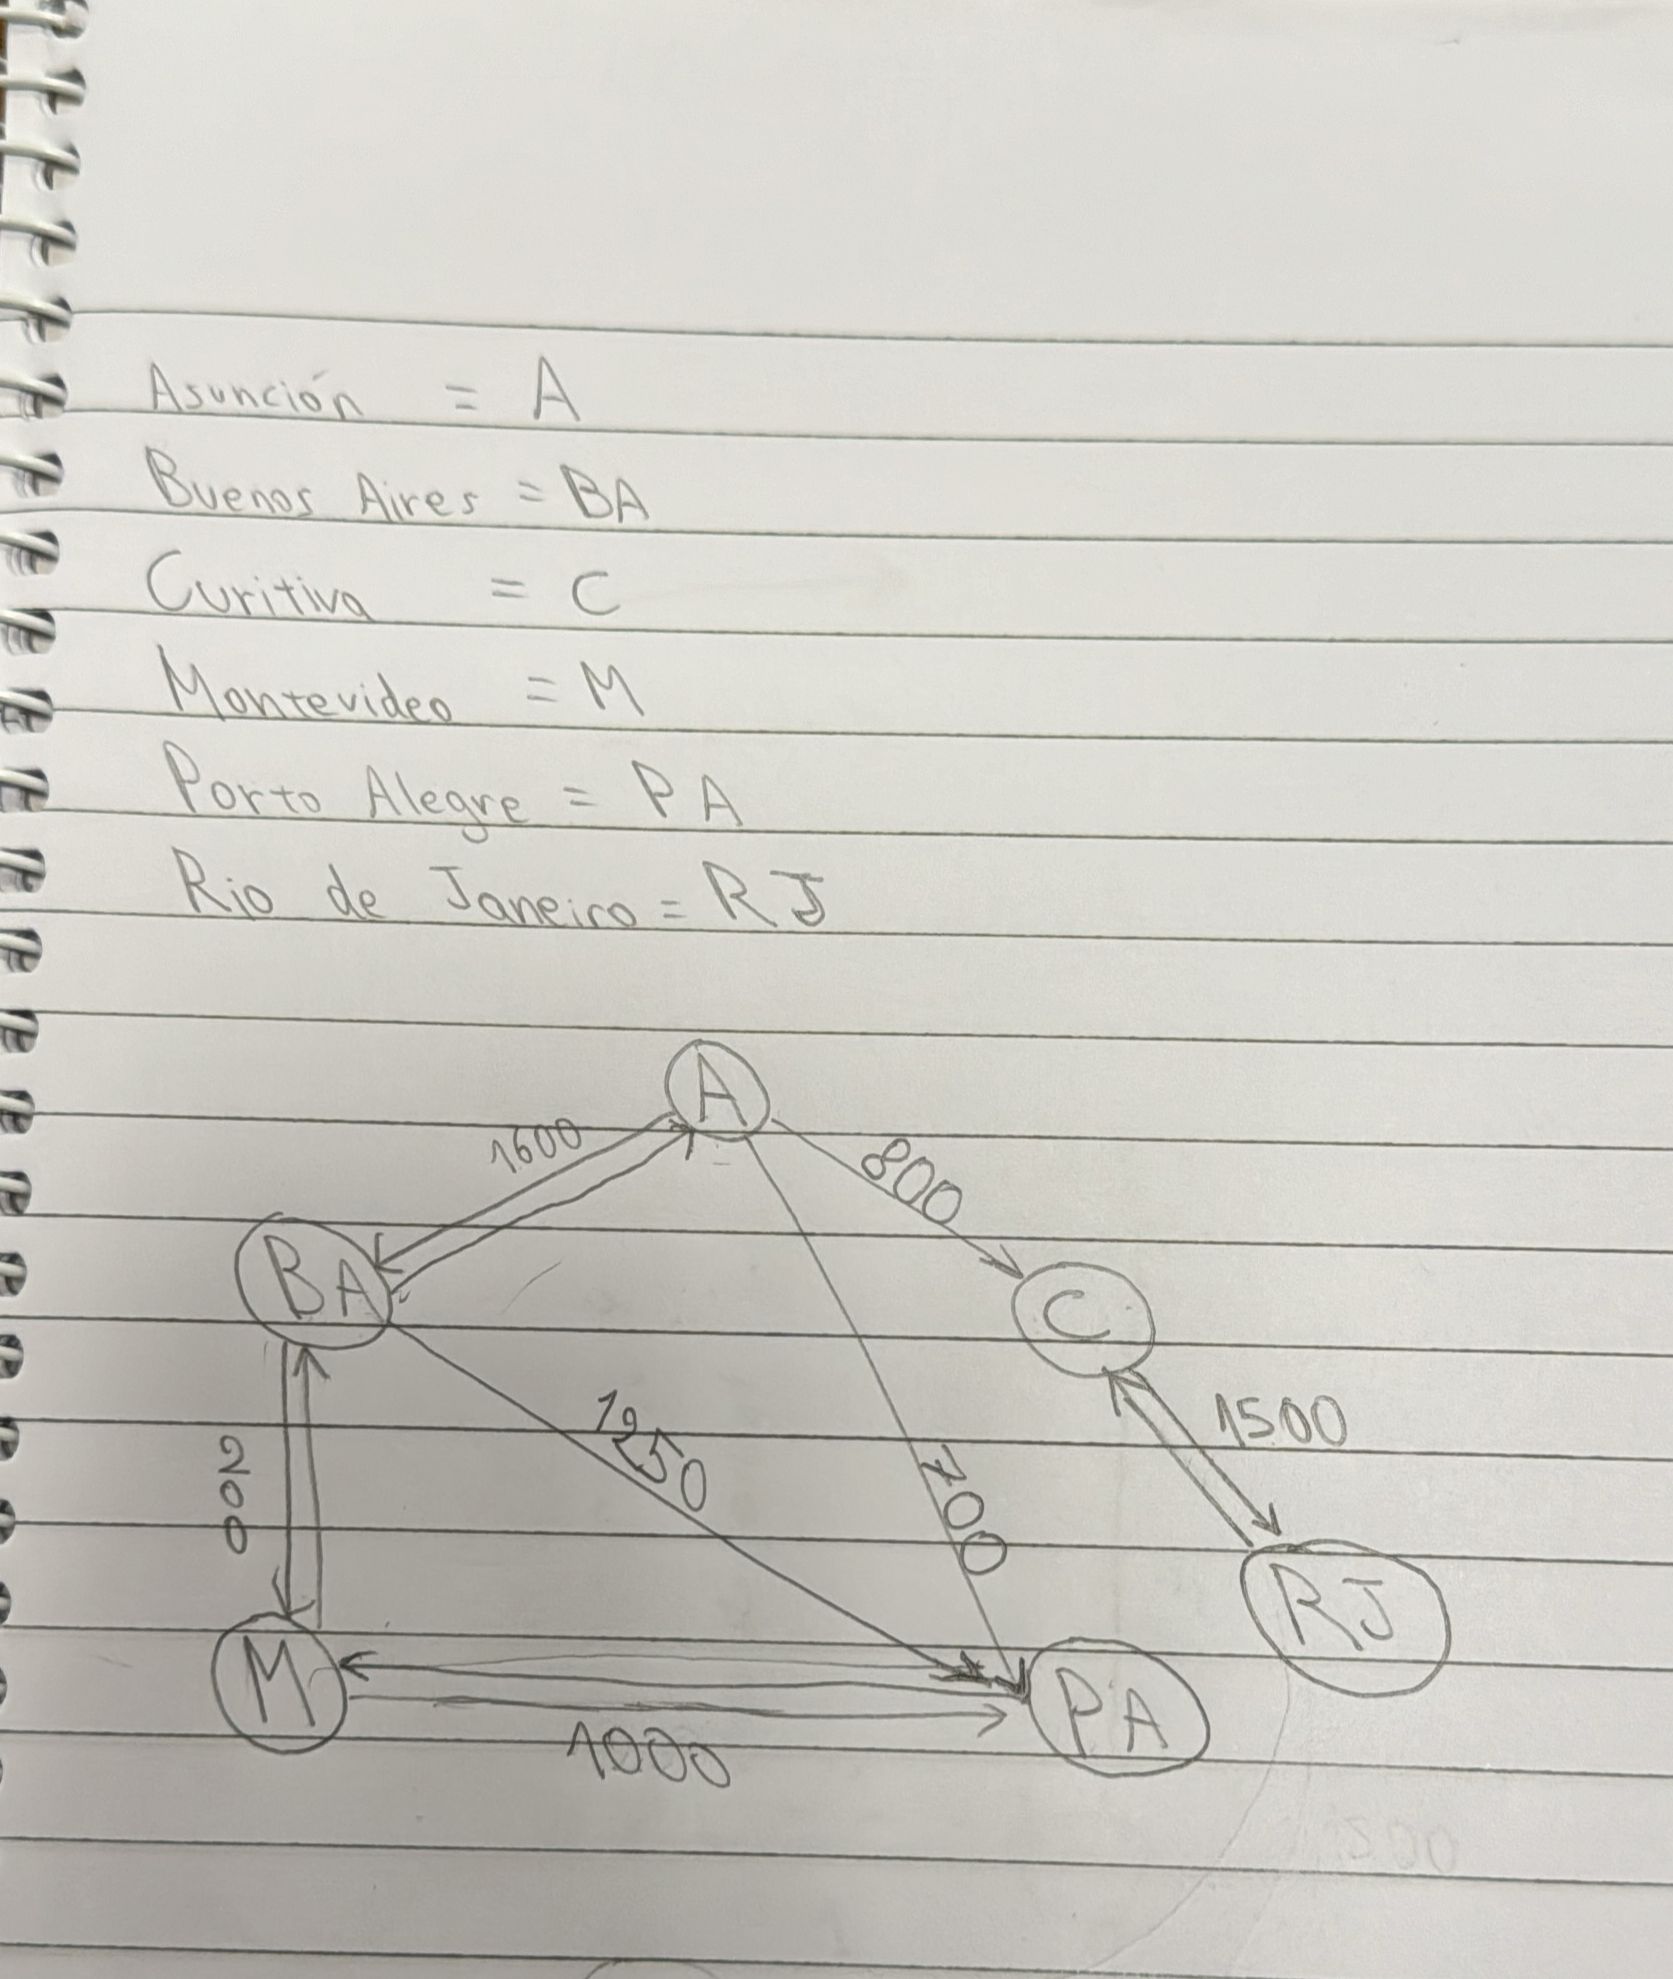 Asunción = A
Buenos Aires = BA
Curitiva = C
Montevideo = M
Porto Alegre = PA
Rio de Janeiro = RJ
A
1600
800
BA
C
1250
1500
200
700
RJ
M
PA
1000
1500